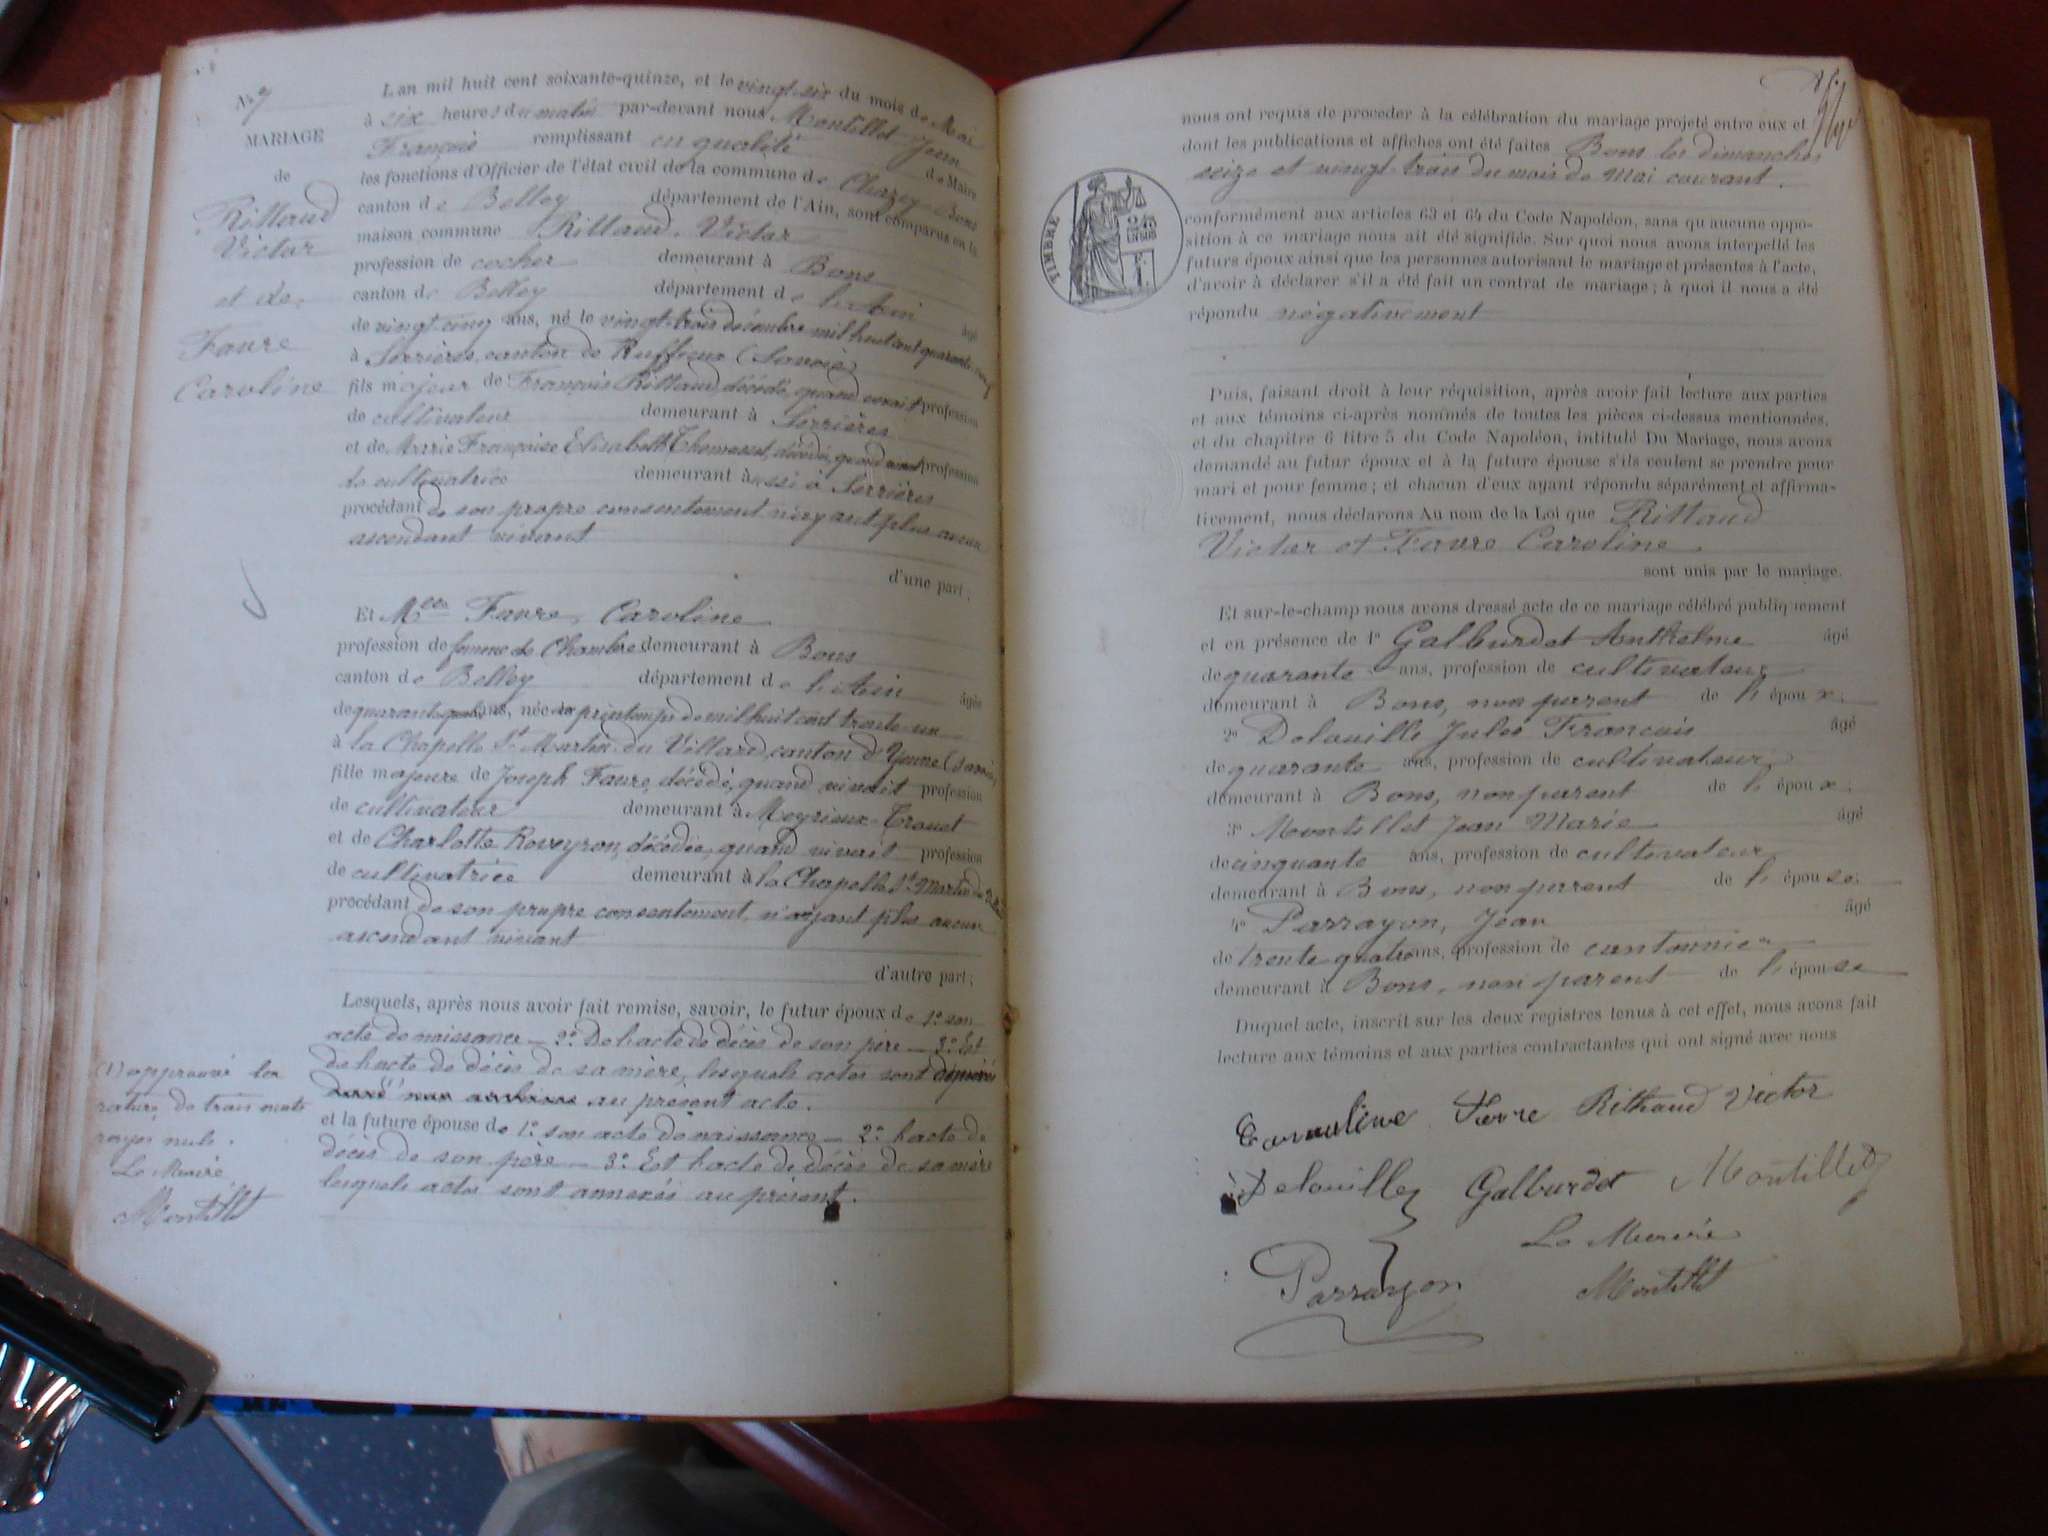 N° 9
MARIAGE
de
Rittaud
Victor
et de
Favre
Caroline
L'an mil huit cent soixante-quinze, et le vingt-six du mois de Mai
à six heures du matin par-devant nous Montillet Jean
François remplissant en qualité de Maire
les fonctions d'Officier de l'état civil de la commune de Chazey-Bons
canton de Belley département de l'Ain, sont comparus en la
maison commune Rittaud, Victor
profession de cocher demeurant à Bons
canton de Belley département de l'Ain âgé
de vingt-cinq ans, né le vingt-trois décembre mil huit cent quarante-neuf
à Serrières, canton de Ruffieux (Savoie)
fils majeur de François Rittaud, décédé, quand vivait profession
de cultivateur demeurant à Serrières
et de Marie Françoise Elisabeth décédée, quand vivait profession
de cultivatrice demeurant aussi à Serrières
procédant de son propre consentement n'ayant plus aucun
ascendant vivant
d'une part ;
Et Mlle Favre, Caroline
profession de femme de Chambre demeurant à Bons
canton de Belley département de l'Ain âgée
de quarante-quatre ans, née le printemps de mil huit cent trente-un
à la Chapelle St Martin du Villard, canton d'Yenne (Savoie)
fille majeure de Joseph Favre, décédé, quand vivait profession
de cultivateur demeurant à Meyrieux-Trouet
et de Charlotte Roveyron, décédée, quand vivait profession
de cultivatrice demeurant à la Chapelle St Martin
procédant de son propre consentement, n'ayant plus aucun
ascendant vivant
d'autre part ;
Lesquels, après nous avoir fait remise, savoir, le futur époux de 1° son
acte de naissance — 2° De l'acte de décès de son père — 3° Et
de l'acte de décès de sa mère, lesquels actes sont
au présent acte.
et la future épouse de 1° son acte de naissance — 2° l'acte de
décès de son père — 3° Et l'acte de décès de sa mère
lesquels actes sont annexés au présent.
(1) approuvé la
rature de trois mots
rayés nuls.
Le Maire
Montillet
nous ont requis de procéder à la célébration du mariage projeté entre eux et
dont les publications et affiches ont été faites Bons les dimanches
seize et vingt-trois du mois de Mai courant.
TIMBRE
conformément aux articles 63 et 64 du Code Napoléon, sans qu'aucune oppo-
sition à ce mariage nous ait été signifiée. Sur quoi nous avons interpellé les
futurs époux ainsi que les personnes autorisant le mariage et présentes à l'acte,
d'avoir à déclarer s'il a été fait un contrat de mariage ; à quoi il nous a été
répondu négativement
Puis, faisant droit à leur réquisition, après avoir fait lecture aux parties
et aux témoins ci-après nommés de toutes les pièces ci-dessus mentionnées,
et du chapitre 6 titre 5 du Code Napoléon, intitulé Du Mariage, nous avons
demandé au futur époux et à la future épouse s'ils veulent se prendre pour
mari et pour femme ; et chacun d'eux ayant répondu séparément et affirma-
tivement, nous déclarons Au nom de la Loi que Rittaud
Victor et Favre Caroline
sont unis par le mariage.
Et sur-le-champ nous avons dressé acte de ce mariage célébré publiquement
et en présence de 1° Galburdet Anthelme âgé
de quarante ans, profession de cultivateur
demeurant à Bons, non parent de l'époux.
2° Delouille Jules François âgé
de quarante ans, profession de cultivateur
demeurant à Bons, non parent de l'époux.
3° Montillet Jean Marie âgé
de cinquante ans, profession de cultivateur
demeurant à Bons, non parent de l'épouse.
4° Parrayon, Jean âgé
de trente quatre ans, profession de cantonnier
demeurant à Bons, non parent de l'épouse
Duquel acte, inscrit sur les deux registres tenus à cet effet, nous avons fait
lecture aux témoins et aux parties contractantes qui ont signé avec nous
Favre Rithaud Victor
Delouille Galburdet Montillet
Le Maire
Parrayon Montillet